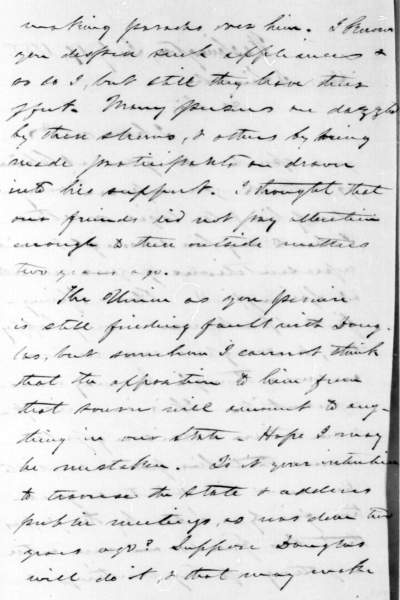 making parades over him. I know
you despise such appliances &
so do I, but still they have their
effect. Many persons are dazzled
by these shows, & others by being
made participants are drawn
into his support. I thought that
our friends did not pay attention
enough to these outside matters
two years ago.
The Union as you perceive
is still finding fault with Doug-
las, but somehow I cannot think
that the opposition to him from
that source will amount to any-
thing in our State - Hope I may
be mistaken. Is it your intention
to traverse the State & address
public meetings, as was done two
years ago? Suppose Douglas
will do it, & that may make